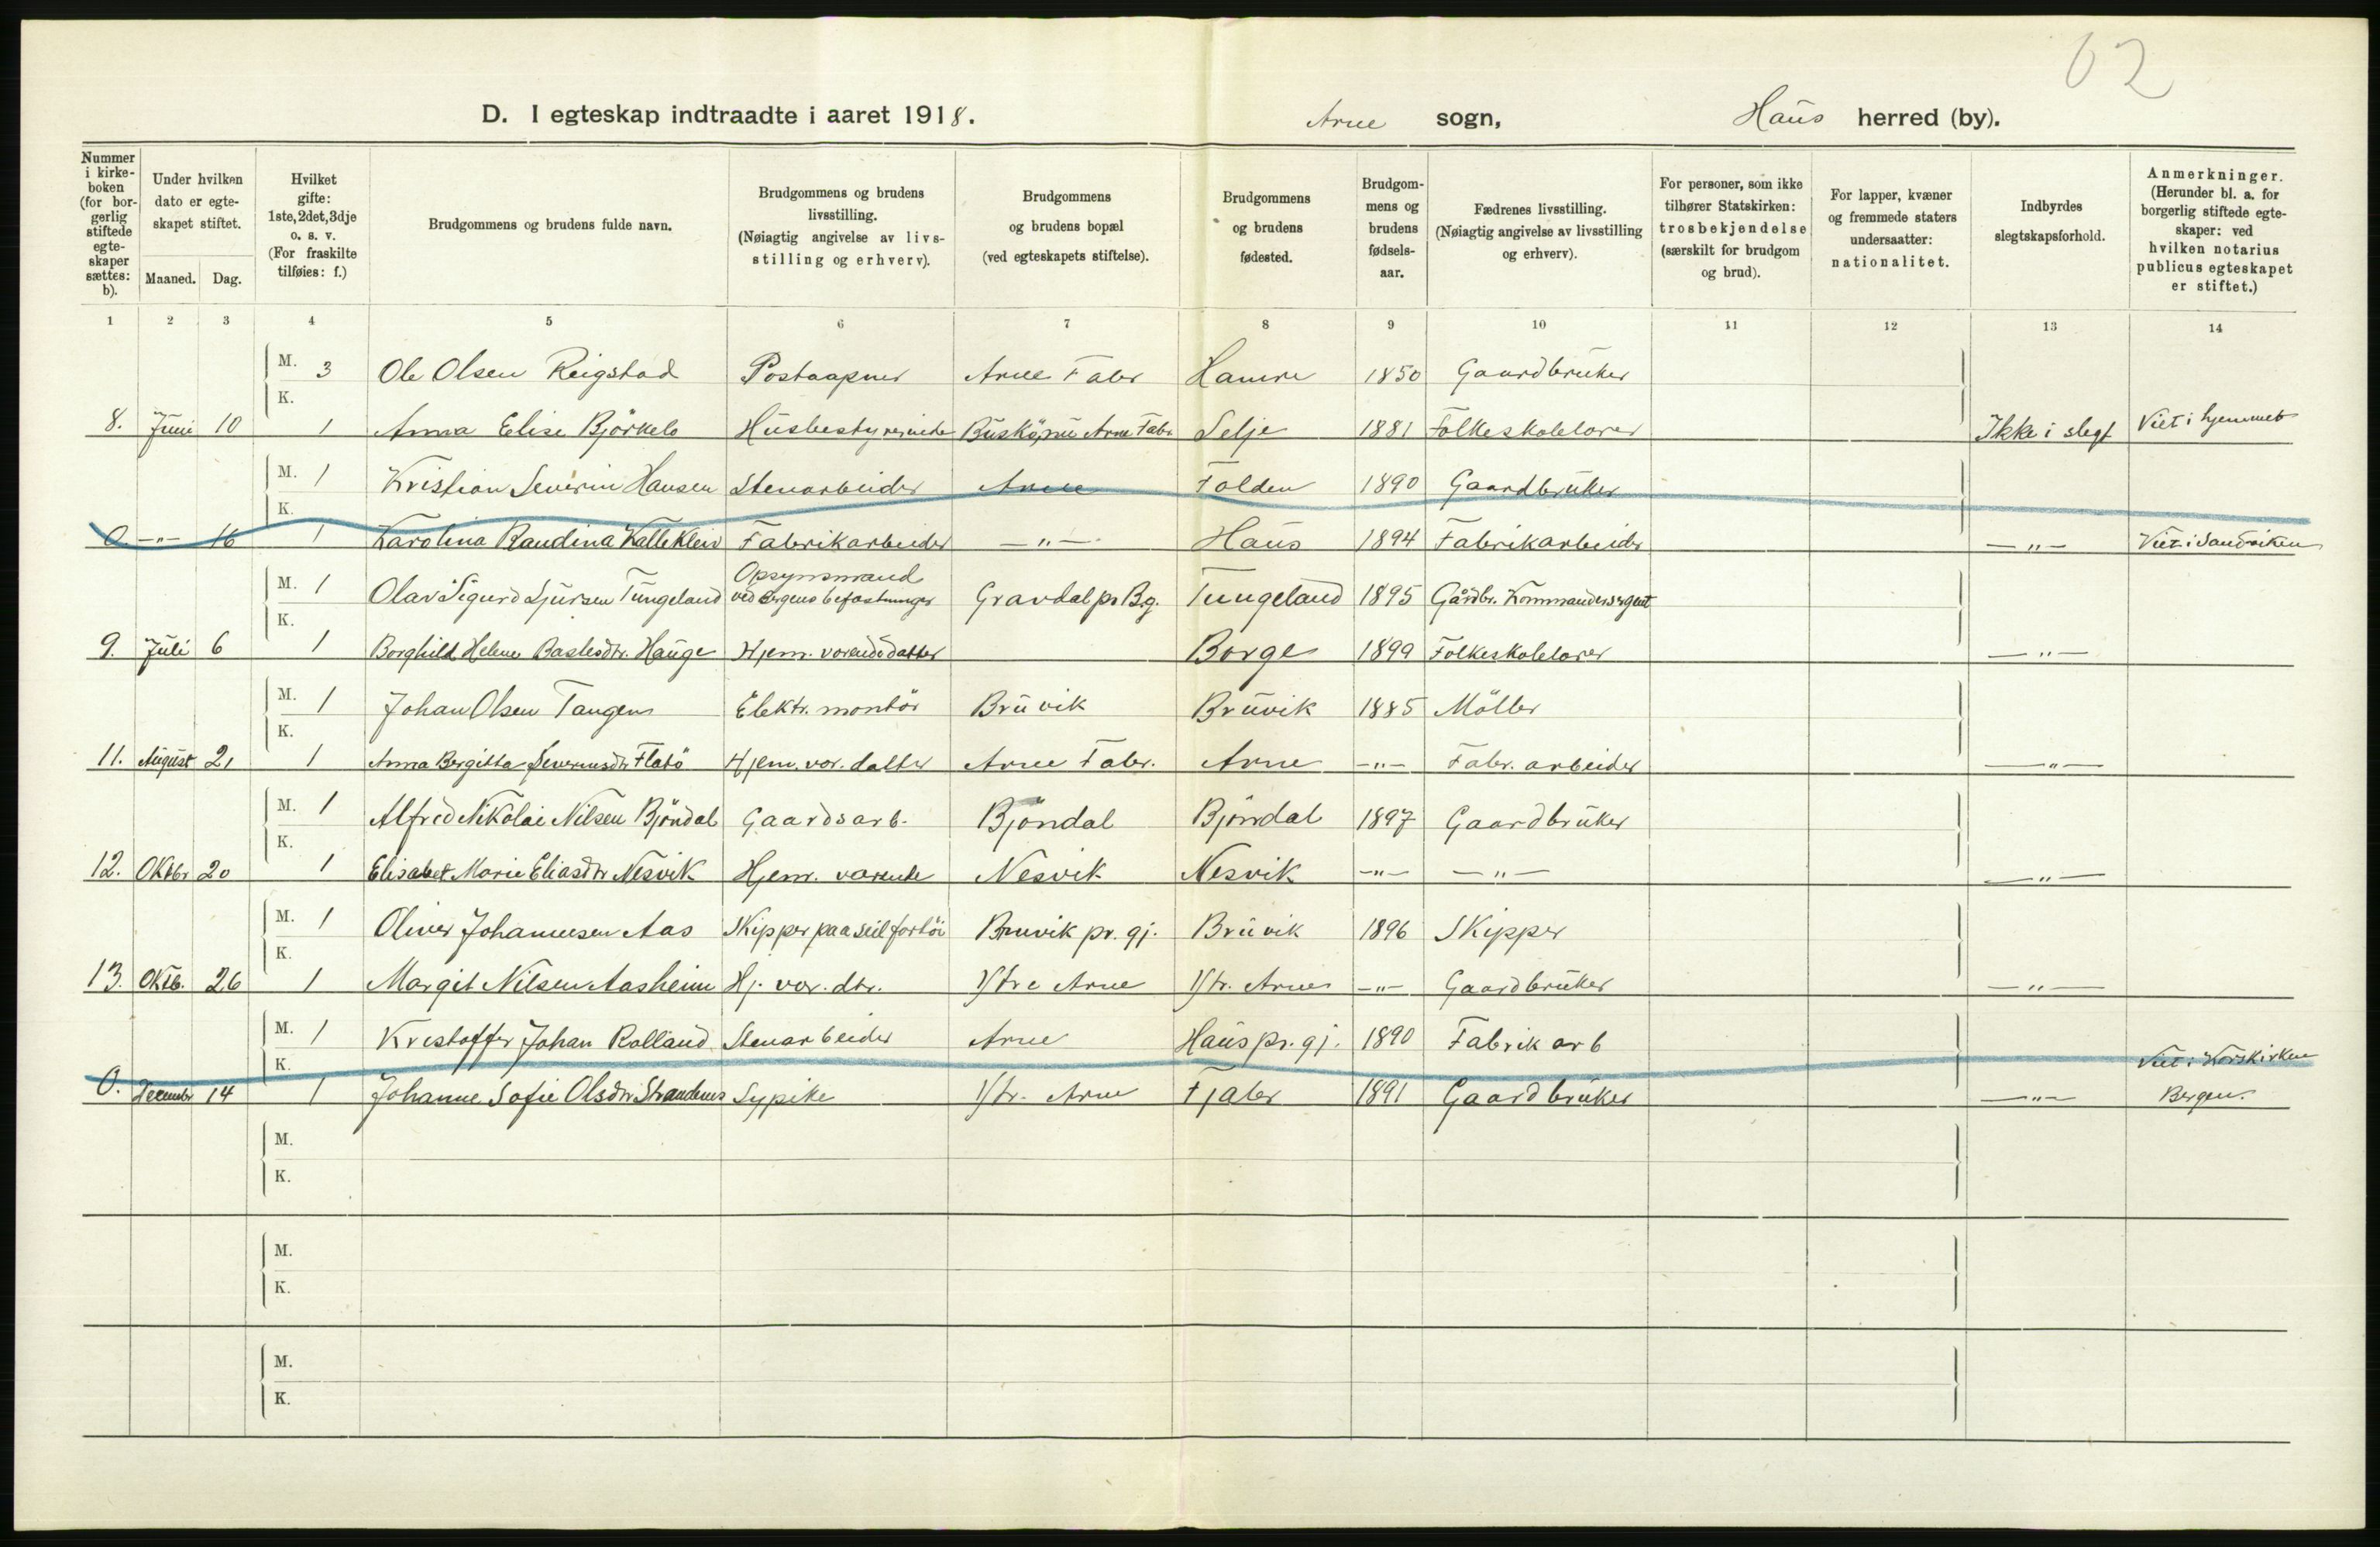 62
D. I egteskap indtraadte i aaret 1918. Arne sogn, Haus herred (by).
Nummer i kirkeboken (for borgerlig stiftede egteskaper sættes: b).
Under hvilken dato er egteskapet stiftet.
Maaned. Dag.
Hvilket gifte: 1ste, 2det, 3dje o. s. v. (For fraskilte tilføies: f.)
Brudgommens og brudens fulde navn.
Brudgommens og brudens livsstilling. (Nøiagtig angivelse av livsstilling og erhverv).
Brudgommens og brudens bopæl (ved egteskapets stiftelse).
Brudgommens og brudens fødested.
Brudgommens og brudens fødselsaar.
Fædrenes livsstilling. (Nøiagtig angivelse av livsstilling og erhverv).
For personer, som ikke tilhører Statskirken: trosbekjendelse (særskilt for brudgom og brud).
For lapper, kvæner og fremmede staters undersaatter: nationalitet.
Indbyrdes slegtskapsforhold.
Anmerkninger. (Herunder bl. a. for borgerlig stiftede egteskaper: ved hvilken notarius publicus egteskapet er stiftet.)
1 2 3 4 5 6 7 8 9 10 11 12 13 14
M. 3 Ole Olsen Reigstad Postaapner Arne Fabr Hamre 1850 Gaardbruker
K.
8. Juni 10 1 Anna Elise Björkelo Husbestyrerinde Arne Fabr. Selje 1881 Folkeskolelærer Ikke i slegt Viet i hjemmet
M. 1 Kristian Severin Hansen Stenarbeider Arne Folden 1890 Gaardbruker
K.
0. -"- 16 1 Karolina Raudina Kalleklein Fabrikarbeider -"- Haus 1894 Fabrikarbeider -"- Viet i Sandviken
M. 1 Olav Sigurd Sjursen Tungeland Opsynsmand ved Bergens befæstninger Gravdal pr Bg. Tungeland 1895 Gårdbr. Kommandersergent
K.
9. Juli 6 1 Borghild Helene Hauge Hjem. værende datter Borge 1899 Folkeskolelærer -"-
M. 1 Johan Olsen Tangen Elektr. montör Bruvik Bruvik 1885 Möller
K.
11. August 21 1 Anna Bergitta Severinsdtr Flatö Hjem. vær. datter Arne Fabr. Arne -"- Fabr. arbeider -"-
M. 1 Alfred Nikolai Nilsen Bjöndal Gaardsarb. Bjöndal Bjöndal 1897 Gaardbruker
K.
12. Oktbr 20 1 Elisabet Marie Eliasdtr Nesvik Hjem. værende Nesvik Nesvik -"- -"- -"-
M. 1 Oliver Johannesen Aas Skipper paa seilfartöi Bruvik pr. gj. Bruvik 1896 Skipper
K.
13. Oktb. 26 1 Margit Nilsen Aasheim Hj. vær. dtr. Ytre Arne Ytr. Arne -"- Gaardbruker -"-
M. 1 Kristoffer Johan Rolland Stenarbeider Arne Haus pr. gj. 1890 Fabrik arb
K.
0. Decembr 14 1 Johanne Sofie Olsdtr Strandenes Sypike Ytr. Arne Fjaler 1891 Gaardbruker -"- Viet i Korskirken Bergen.
M.
K.
M.
K.
M.
K.